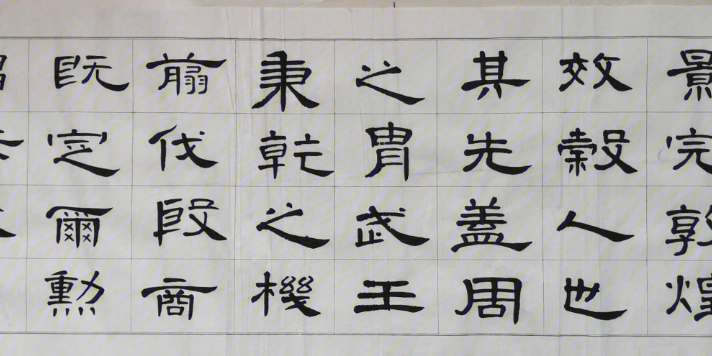 景完敦煌
效穀人也
其先盖周
之胄武王
秉乾之機
翦伐殷商
既定爾勳